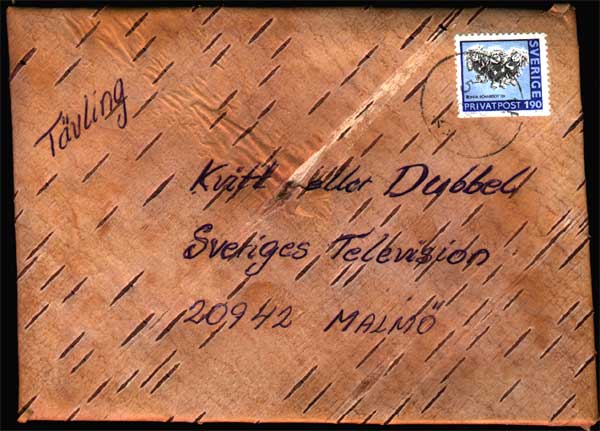 Tävling
SVERIGE
PRIVATPOST 190
Kvitt eller Dubbel
Sveriges Television
20942 MALMÖ